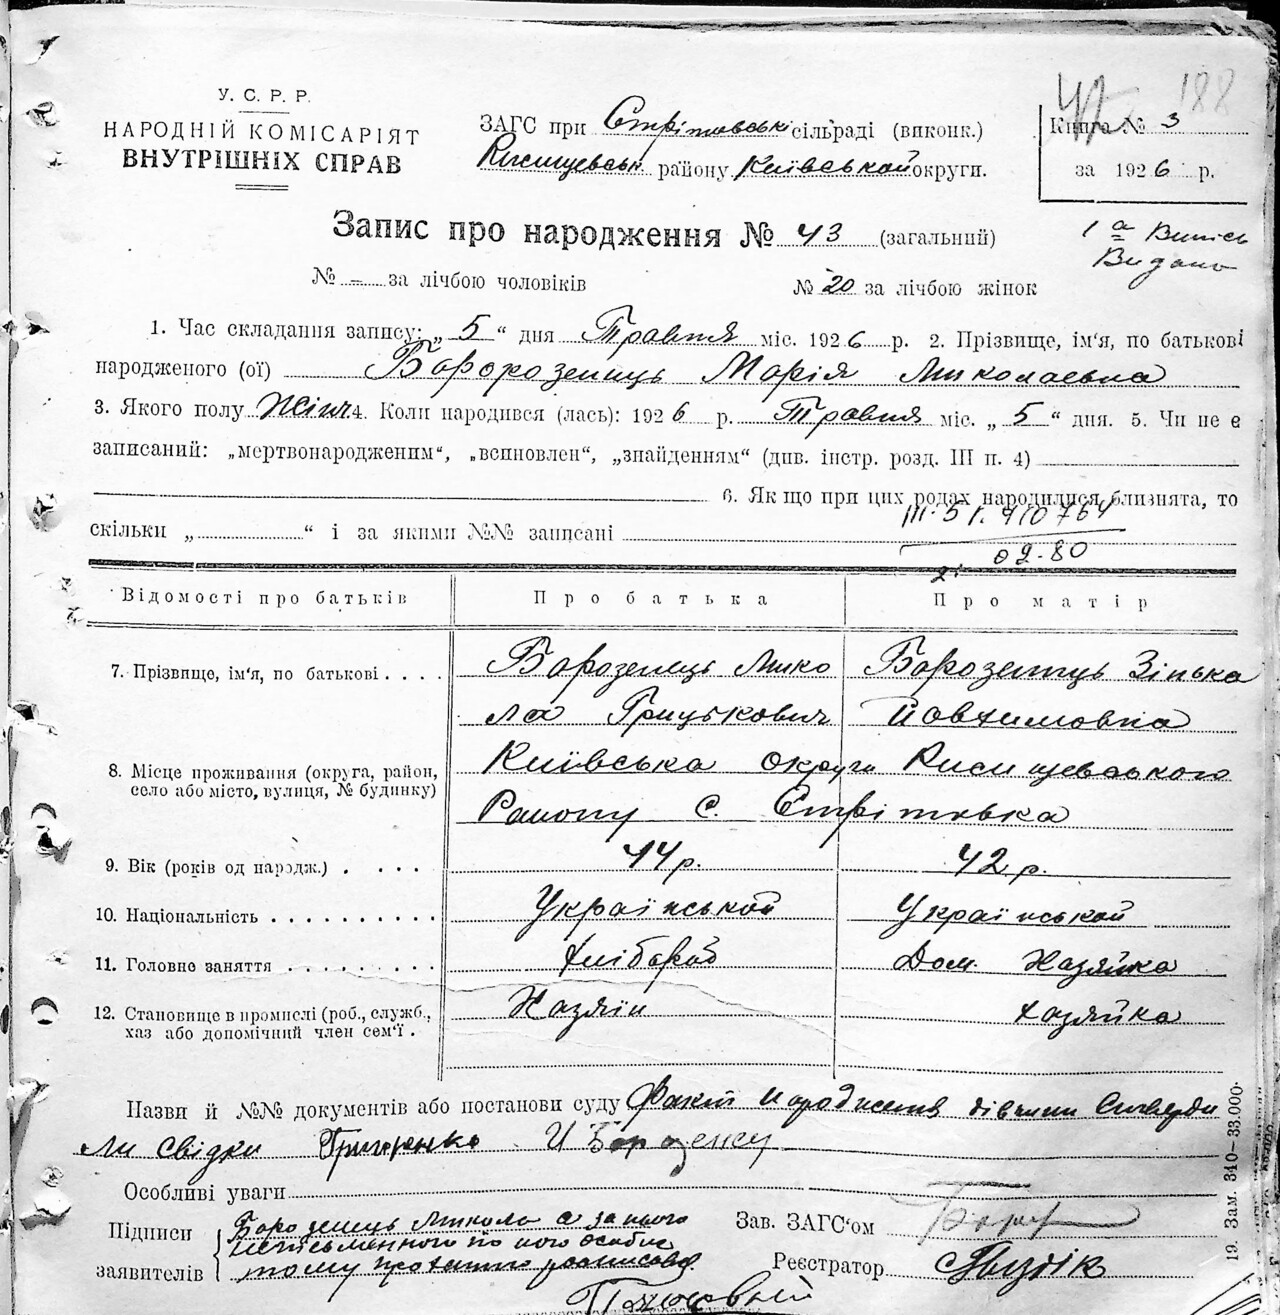 188
47
У. С. Р. Р.
НАРОДНІЙ КОМІСАРІЯТ
ВНУТРІШНІХ СПРАВ
ЗАГС при Стрітовськ сільраді (виконк.)
району Київськой округи.
Книга № 3
за 1926 р.
Запис про народження № 43 (загальний)
1а Випись
Видано
№ – за лічбою чоловіків № 20 за лічбою жінок
1. Час складання запису: „5“ дня Травня міс. 1926 р. 2. Прізвище, ім'я, по батькові
народженого (ої) Марія Миколаевна
3. Якого полу Жіноч 4. Коли народився (лась): 1926 р. Травня міс. „5“ дня. 5. Чи не є
записаний: „мертвонародженим“, „всиновлен“, „знайденням“ (див. інстр. розд. III п. 4)
6. Як що при цих родах народилися близнята, то
скільки „ “ і за якими №№ записані
III-БК 410764
09-80
Відомості про батьків Про батька Про матір
7. Прізвище, ім'я, по батькові . . . . Борозенець Мико Борозенець Зінька
ла Грицькович Йовхимовна
8. Місце проживання (округа, район, Київська округи
село або місто, вулиця, № будинку) Району С. Стрітовка
9. Вік (років од народж.) . . . . 44 р. 42 р.
10. Національність . . . . . . . . . . Української Української
11. Головне заняття . . . . . . . . . Хлібороб Дом. Хазяйка
12. Становище в промислі (роб., служб., Хазяїн хазяйка
хаз або допомічний член сем'ї .
Назви й №№ документів або постанови суду Факт народження дівчини Ствердили
Свідки И
Особливі уваги
Підписи Борозенець Микола а за нього
неписьменного по його особис
заявителів тому проханню росписався
Зав. ЗАГС'ом
Реєстратор
19. Зам. 340—33.000.